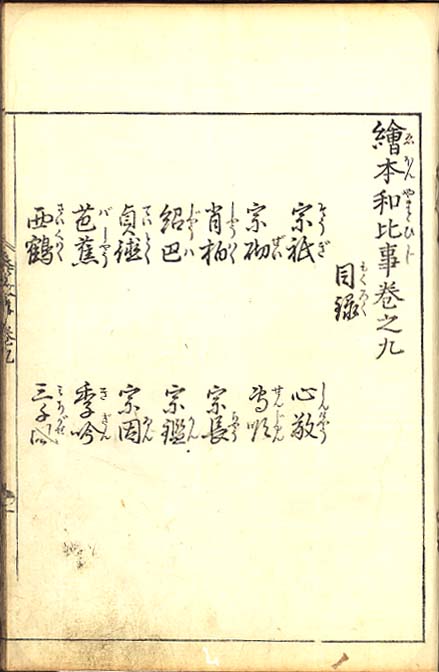 繪本和比事巻之九
目録
宗祇
宗砌
肖柏
紹巴
貞德
芭蕉
西鶴
心敬
専順
宗長
宗鑑
宗因
季吟
三千風